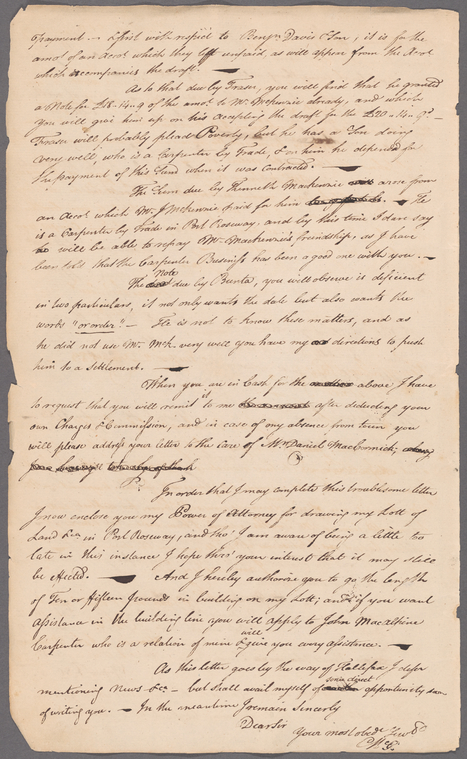 payment. — & first with respect to Benjn. Davis & Son, it is for the
amot. of an Accot. which they left unpaid, as will appear from the Accot
which accompanies the draft. —
As to that due by Fraser, you will find that he granted
a Note for £18.14.9 of the amot. to Mr. McKenzie already, and which
you will give him up on his accepting the draft for the £20.14.9. —
Fraser will probably plead Poverty, but he has a Son doing
very well, who is a Carpenter by Trade, & on him he depended for
the payment of this Sum when it was contracted. —
The Sum due by Kenneth Mackenzie arose from
an Accot. which Mr. J McKenzie paid for him. — He
is a Carpenter by Trade in Port Roseway, and by this time I dare say
he will be able to repay Mr. Mackenzie's friendship, as I have
been told that the Carpenter Business has been a good one with you. —
The Note due by you will observe is deficient
in two particulars, it not only wants the date but also wants the
words "or order" — He is not to know these matters, and as
he did not use Mr. McK. very well you have my directions to push
him to a Settlement. —
When you are in Cash for the above, I have
to request that you will remit it to me after deducting your
own Charges & Commission, and in case of my absence from town you
will please address your letter to the Care of Mr. Daniel MacCormick;
In order that I may complete this troublesome letter
I now enclose you my Power of Attorney for drawing my Lott of
Land &ca in Port Roseway, and tho' I am aware of being a little too
late in this instance I hope thro' your interest that it may still
be effected. — And I hereby authorize you to go the length
of Ten or Fifteen Pounds in building on my Lott; and if you want
assistance in the building line you will apply to John Macalpine
Carpenter who is a relation of mine & will give you every assistance. —
As this letter goes by the way of Hallifax I defer
mentioning News &ca — but shall avail myself of some direct opportunity
of writing you. — In the meantime I remain Sincerly
Dear Sir
Your most obedt. Servt